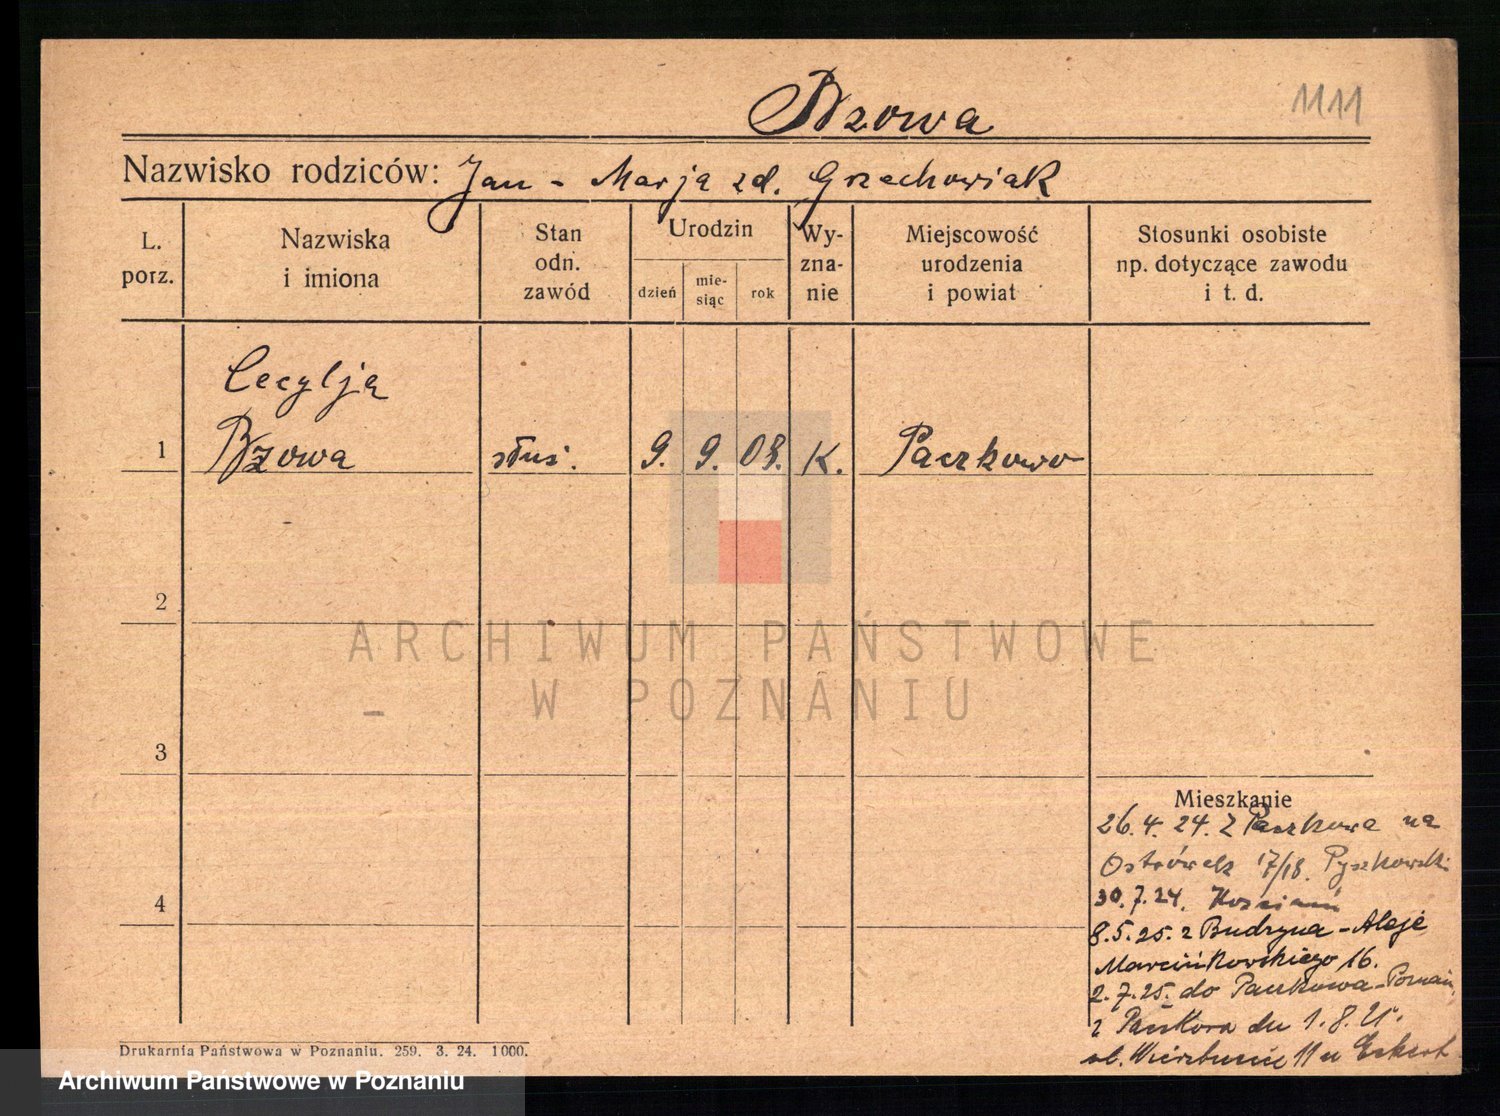 Bzowa
1111
Nazwisko rodziców: Jan - Marja zd. Grzechowiak
L. porz.
Nazwiska i imiona
Stan odn. zawód
Urodzin
dzień
mie-siąc
rok
Wy-zna-nie
Miejscowość urodzenia i powiat
Stosunki osobiste np. dotyczące zawodu i t. d.
Cecylja
1 Bzowa służ. 9. 9. 08. K. Paczkowo
2
ARCHIWUM PAŃSTWOWE
W POZNANIU
3
Mieszkanie
26.4.24. z Paczkowa na
Ostrówek 17/18. Pyszkowski
4
30.7.24.
8.5.25. z Budzyna - Aleje
Marcinkowskiego 16.
2.7.25. do Paczkowa-Poznań
z dn 1.8.
ul. 11 u
Drukarnia Państwowa w Poznaniu. 259. 3. 24. 1000.
Archiwum Państwowe w Poznaniu